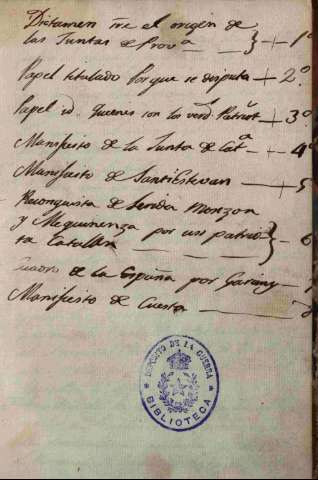 Dictamen sre el origen de
las Juntas de Prov.a } + 1º
Papel titulado Por que se disputa + 2º
Papel id. Quienes son los verd.s Patriot + 3º
Manifiesto de la Junta de Cat.a 4º
Manifiesto de SantiEstevan + 5
Reconquista de Lerida Monzon
y Mequinenza por un patrio-
ta Catalan } 6
Cuadro de la España por Garciny
Manifiesto de Cuesta
DEPOSITO DE LA GUERRA
BIBLIOTECA